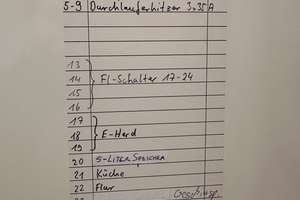 5-9 Durchlauferhitzer 3x35A
13
14 FI-Schalter 17-24
15
16
17
18 E-Herd
19
20 5-LITER SPEICHER
21 Küche
22 Flur